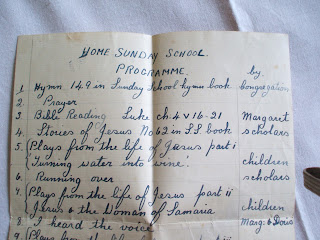 HOME SUNDAY SCHOOL.
PROGRAMME. by.
1 Hymn 149 in Sunday School hymn book congregation
2 Prayer
3 Bible Reading Luke ch 4 v 16-21 Margaret
4. Stories of Jesus No 62 in SS book scholars
5 Plays from the life of Jesus part i
Turning water into wine'. children
6. Running over scholars
7 Plays from the life of Jesus part ii
Jesus & the Woman of Samaria children
8 I heard the voice Marg: & Doris
9 Plays from the life of Jesus